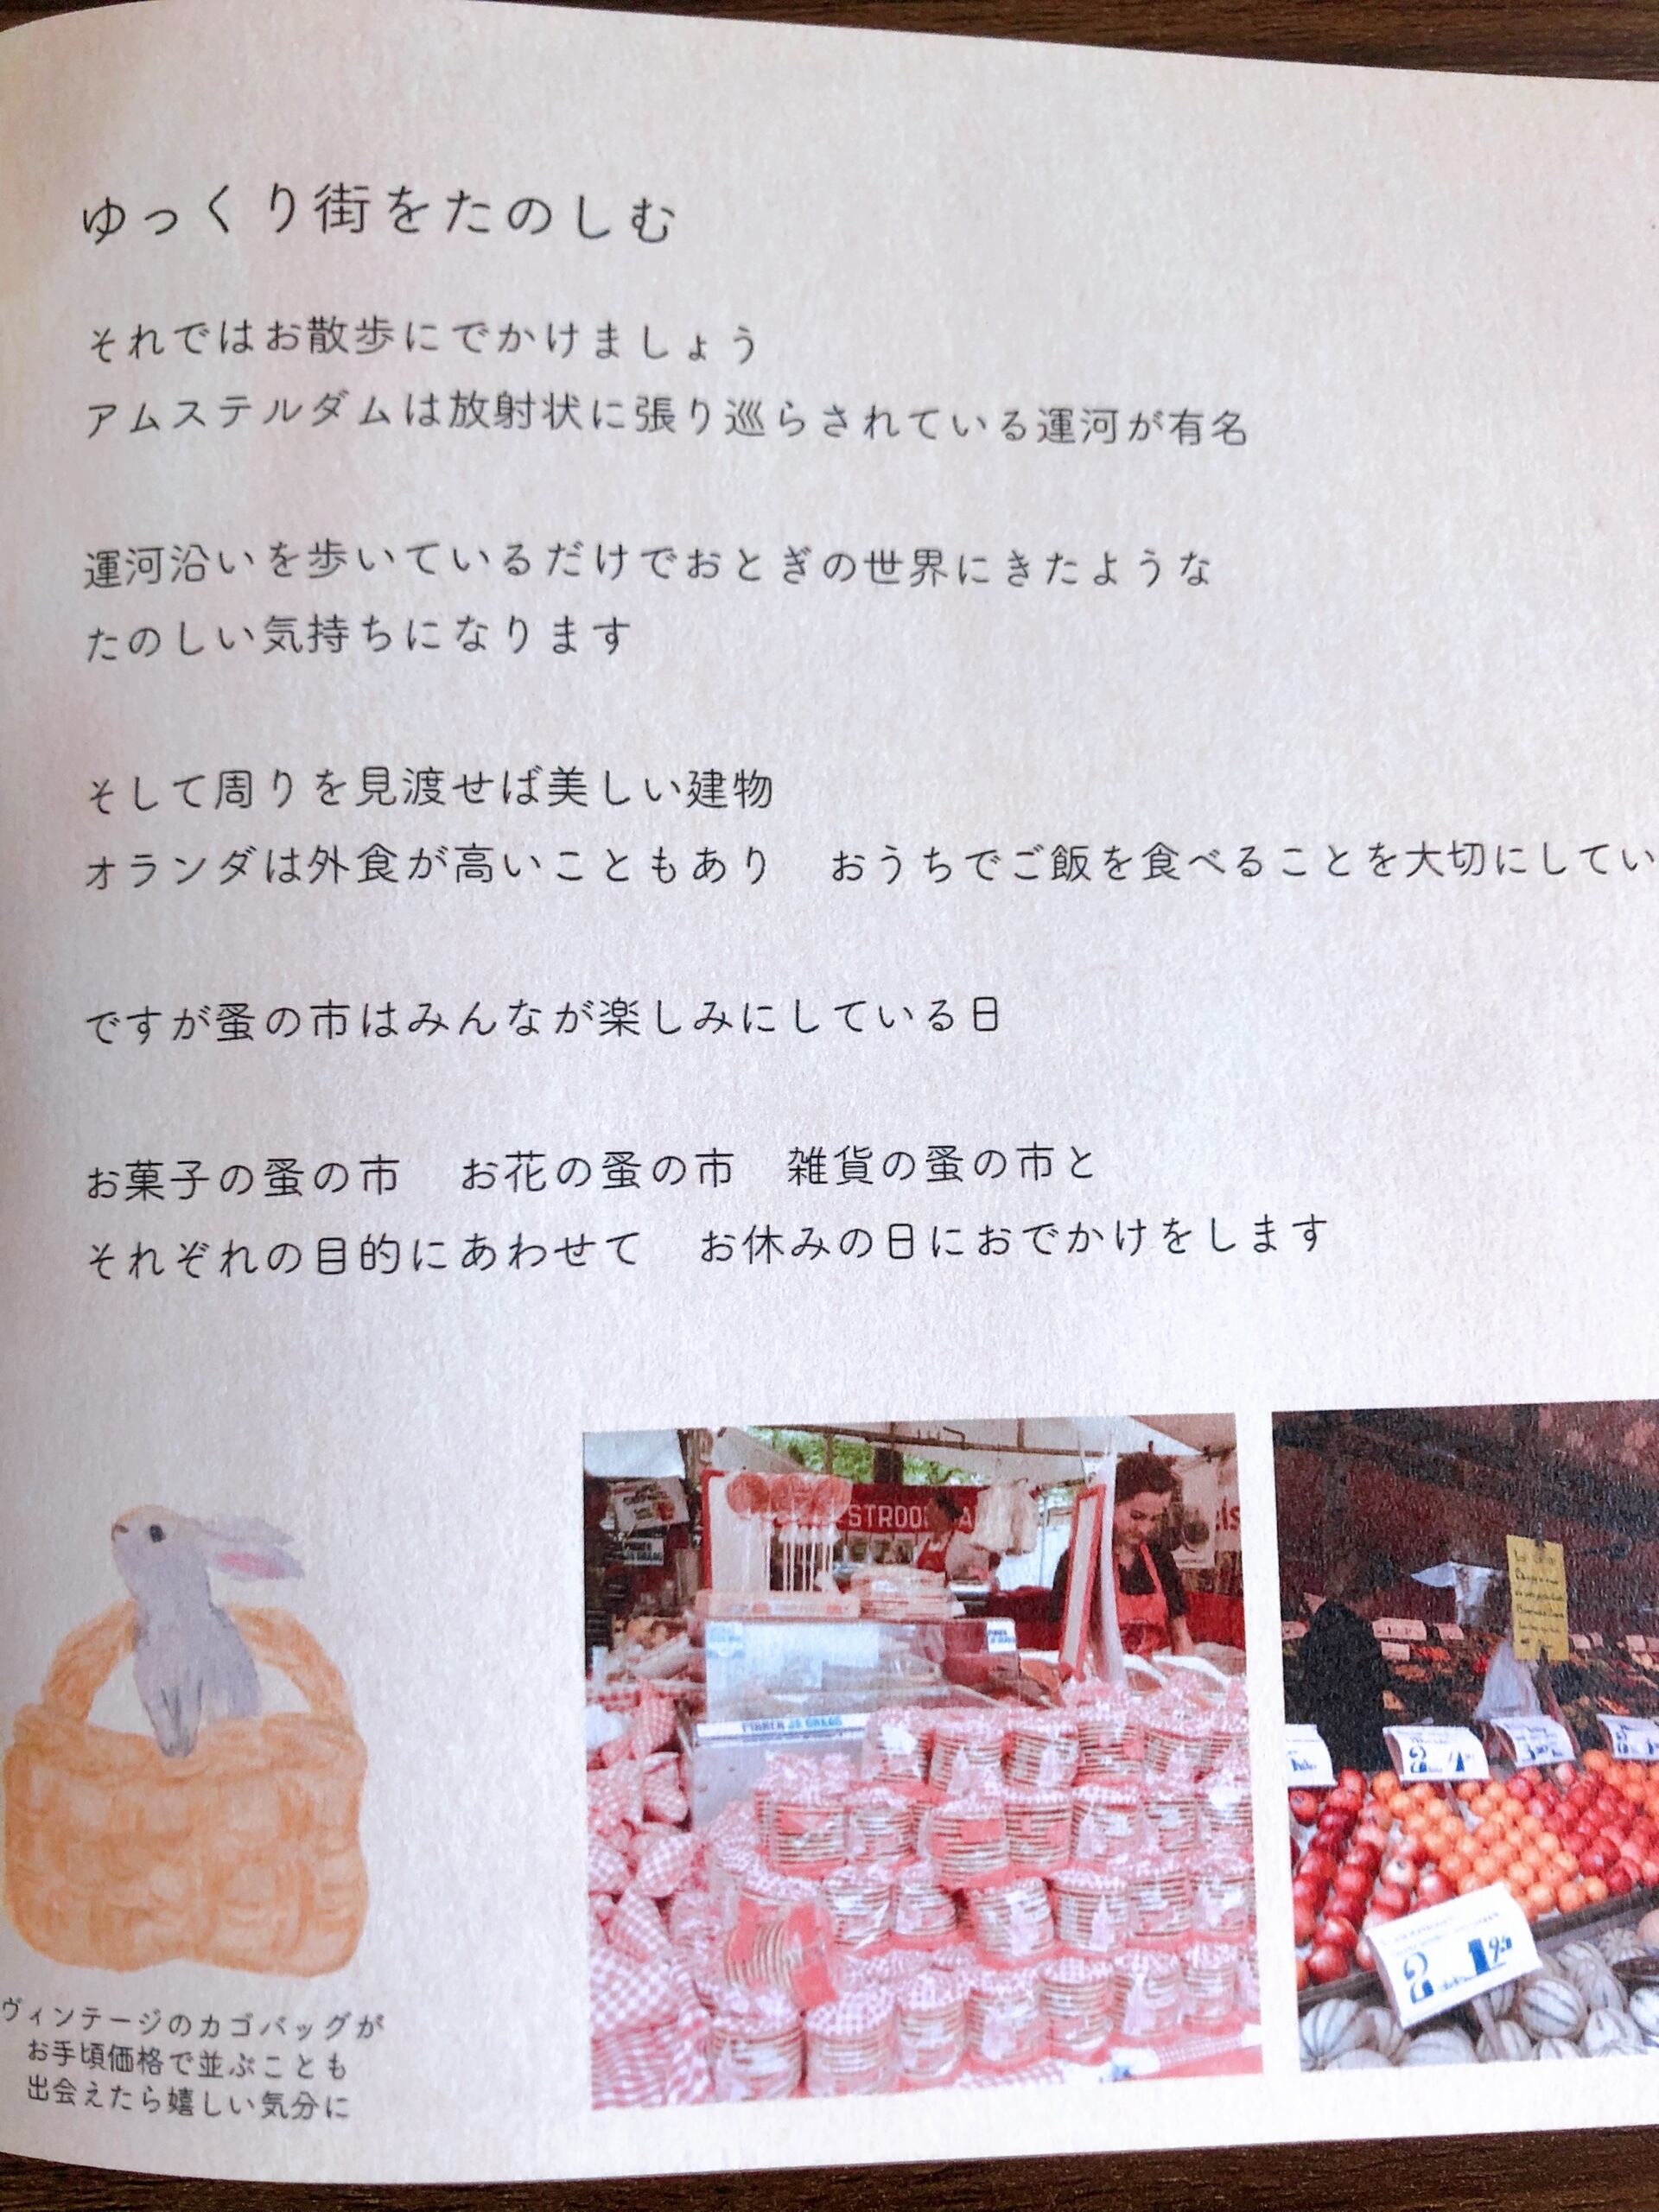 ゆっくり街をたのしむ
それではお散歩にでかけましょう
アムステルダムは放射状に張り巡らされている運河が有名
運河沿いを歩いているだけでおとぎの世界にきたような
たのしい気持ちになります
そして周りを見渡せば美しい建物
オランダは外食が高いこともあり　おうちでご飯を食べることを大切にしてい
ですが蚤の市はみんなが楽しみにしている日
お菓子の蚤の市　お花の蚤の市　雑貨の蚤の市と
それぞれの目的にあわせて　お休みの日におでかけをします
ヴィンテージのカゴバッグが
お手頃価格で並ぶことも
出会えたら嬉しい気分に